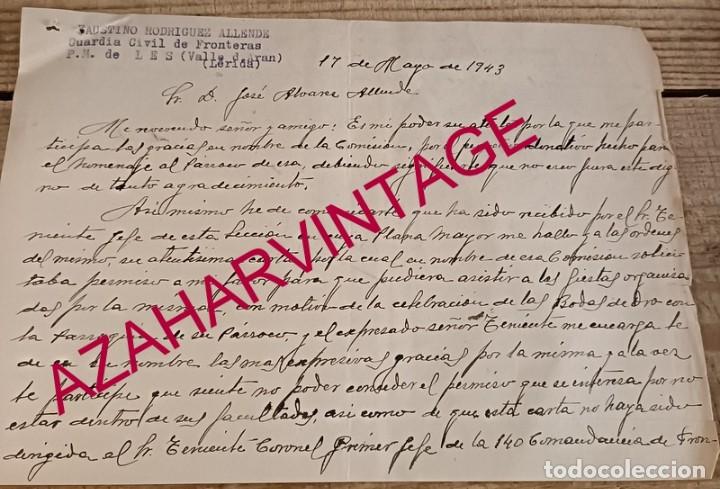 FAUSTINO RODRIGUEZ ALLENDE
Guardia Civil de Fronteras
P.M. de L E S (Valle d.Aran)
(Lerida)
17 de Mayo de 1943
Sr. D. José Alvare Allende
Mi señor y amigo: Es mi poder su por la que me par-
ticipa las gracias en nombre de la Comisión, por donativo hecho para
el homenaje al Párroco de esa, debiendo que no creo fuera este dig-
no de tanto agradecimiento.
Asi mismo he de que ha sido recibido por el Sr. Te-
niente Jefe de esta Sección en cuya Plana Mayor me hallo y a las ordenes
del mismo, su atentisima carta por la cual en nombre de esa Comisión solici-
taba permiso a mi favor para que pudiera asistir a las fiestas organiza-
das por la misma, con motivo de la celebración de las Bodas de Oro con
la Parroquia de su Párroco, y el expresado señor Teniente me encarga le
de en su nombre las mas expresivas gracias por la misma y a la vez
le participe que siente no poder conceder el permiso que se interesa por no
estar dentro de sus facultades, asi como de que esta carta no haya sido
dirigida al Sr. Teniente Coronel Primer Jefe de la 140 Comandancia de Fron-
AZAHARVINTAGE
todocoleccion